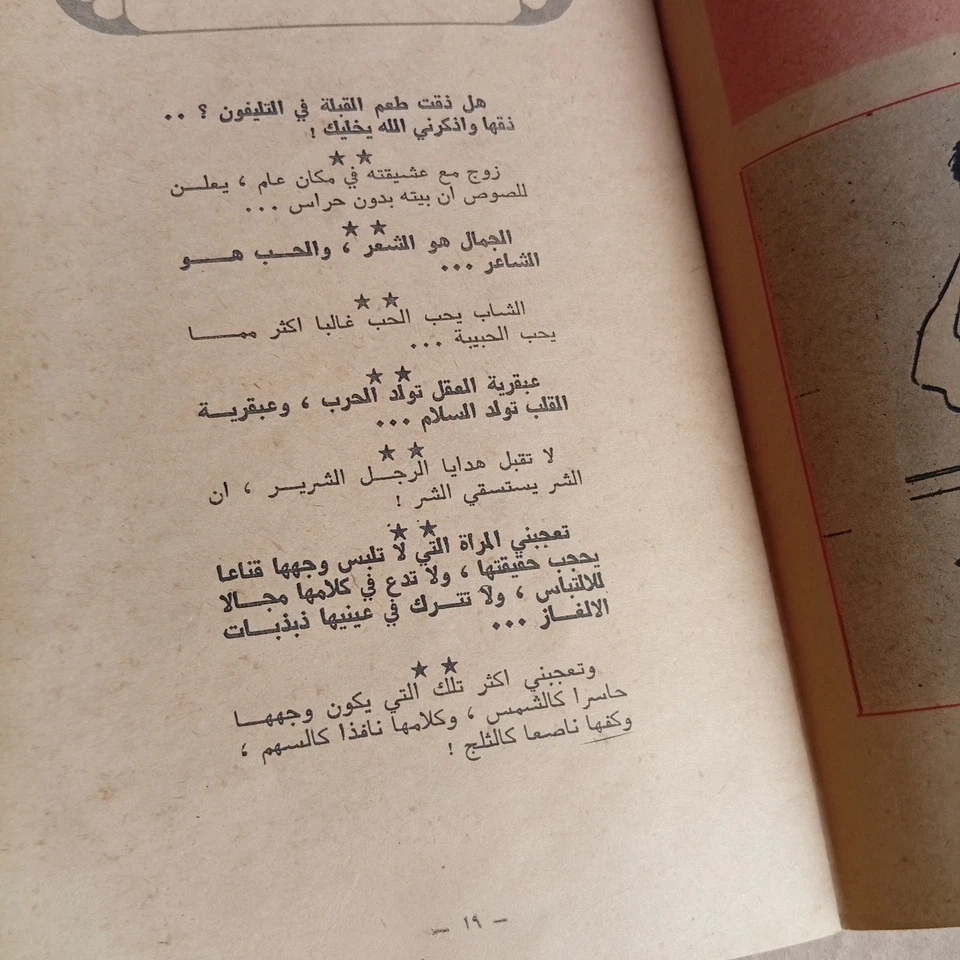 هل ذقت طعم القبلة في التليفون ؟ ..
ذقها واذكرني الله يخليك !
★ ★
زوج مع عشيقته في مكان عام ، يعلـــن
للصوص ان بيته بدون حراس ...
★ ★
الجمال هو الشعر ، والحـــب هـــو
الشاعر ...
★ ★
الشاب يحب الحب غالبا اكثر ممـــا
يحب الحبيبة ...
★ ★
عبقرية العقل تولد الحرب ، وعبقريـــة
القلب تولد السلام ...
★ ★
لا تقبل هدايا الرجـــل الشريـــر ، ان
الشر يستسقي الشر !
★ ★
تعجبني المرأة التي لا تلبس وجهها قناعا
يحجب حقيقتها ، ولا تدع في كلامها مجـــالا
للالتباس ، ولا تتـــرك في عينيها ذبذبـــات
الالغـــاز ...
★ ★
وتعجبني اكثر تلك التي يكون وجههـــا
حاسرا كالشمس ، وكلامها نافذا كالسهم ،
وكفها ناصعا كالثلج !
– ١٩ –